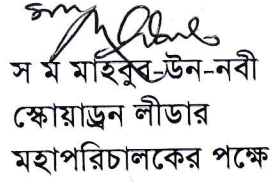 স ম মাহবুব-উন-নবী
স্কোয়াড্রন লীডার
মহাপরিচালকের পক্ষে